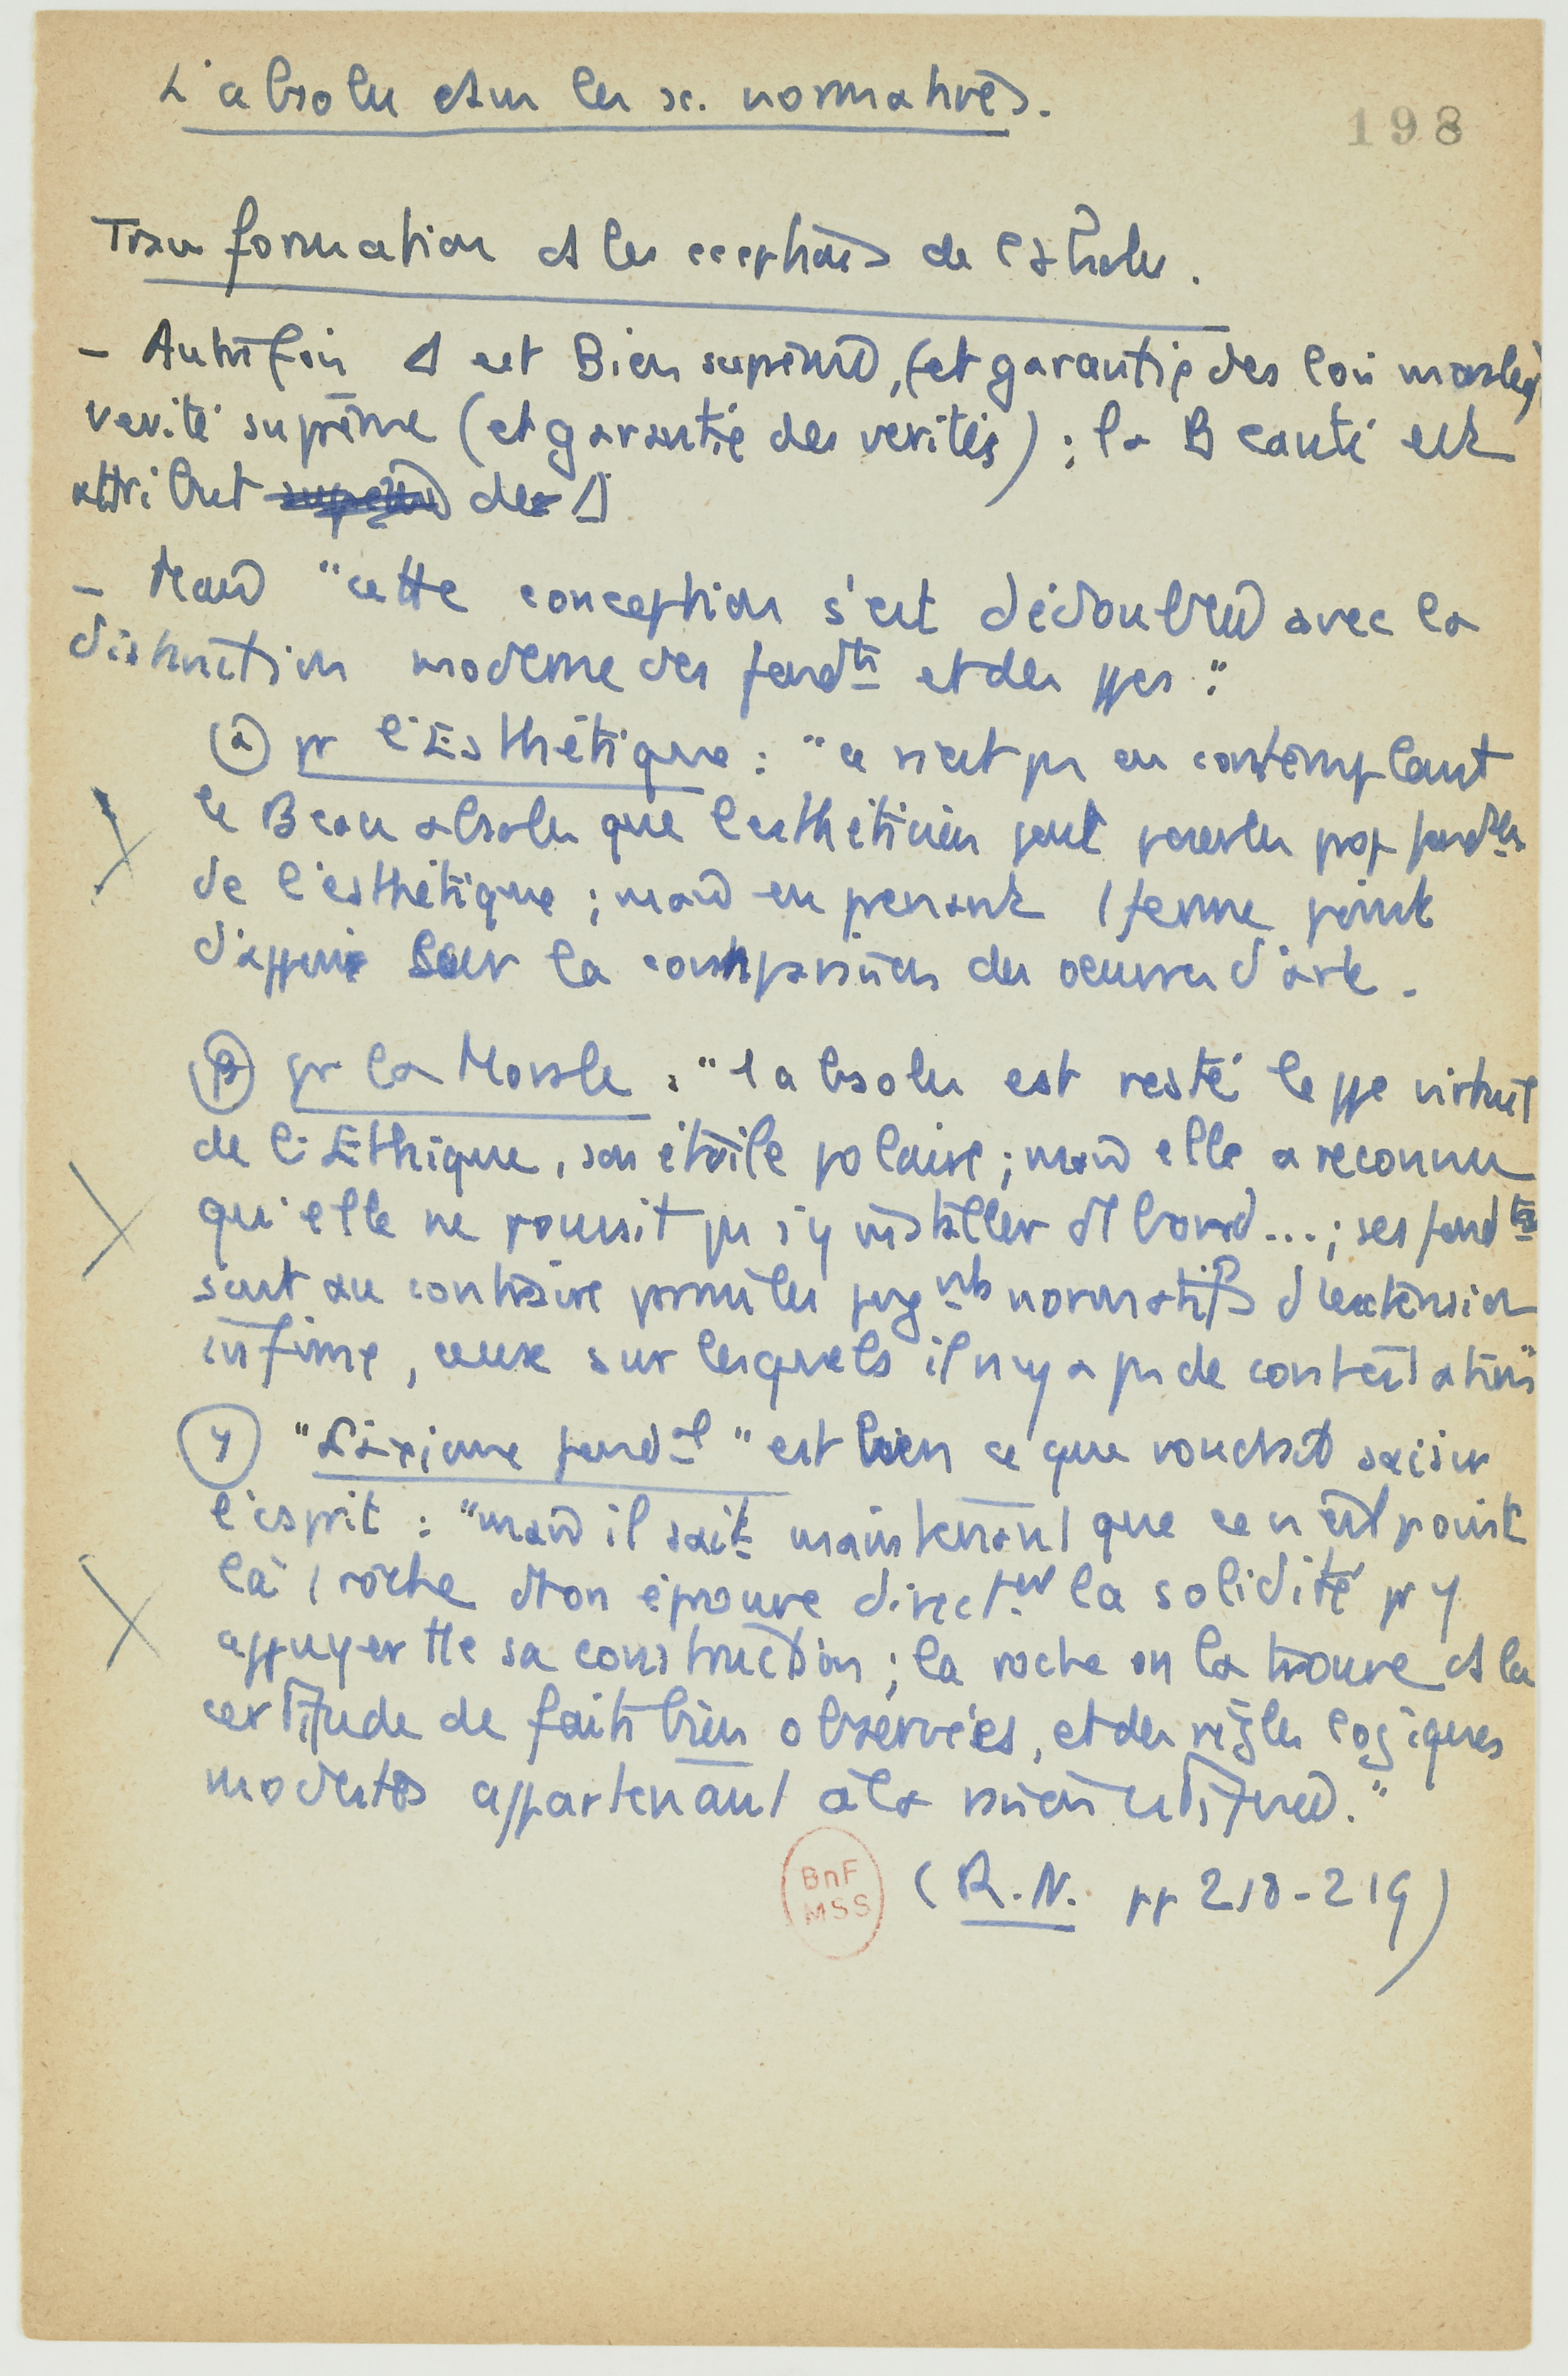 L'absolu dans les sc. normatives.
198
Transformation ds les acceptions de l'absolu.
- Autrefois Δ est Bien suprême, (et garantie des lois morales)
vérité suprême (et garantie des vérités) ; la Beauté est
attribut de Δ
- Mais "cette conception s'est dédoublée avec la
distinction moderne des fondts et des ppes :"
α pr l'Esthétique : "ce n'est ps en contemplant
le Beau absolu que l'esthéticien peut prop fondles
de l'esthétique ; mais en prenant 1 ferme point
d'appui sur la comparaison des oeuvres d'art.
β pr la Morale : "l'absolu est resté le ppe virtuel
de l'Ethique, son étoile polaire ; mais elle a reconnu
qu'elle ne pouvait ps s'y installer d'abord... ; ses fondts
sont au contraire parmi les jugmts normatifs d'extension
infime, ceux sur lesquels il n'y a ps de contestations"
γ "L'axiome fondal" est bien ce que voudrait saisir
l'esprit : "mais il sait maintenant que ce n'est point
là 1 roche dt on éprouve directmt la solidité pr y
appuyer tte sa construction ; la roche on la trouve ds la
certitude de faits bien observés, et des règles logiques
modestes appartenant à la raison constituée."
BnF
MSS
(R.N. pp 218-219)